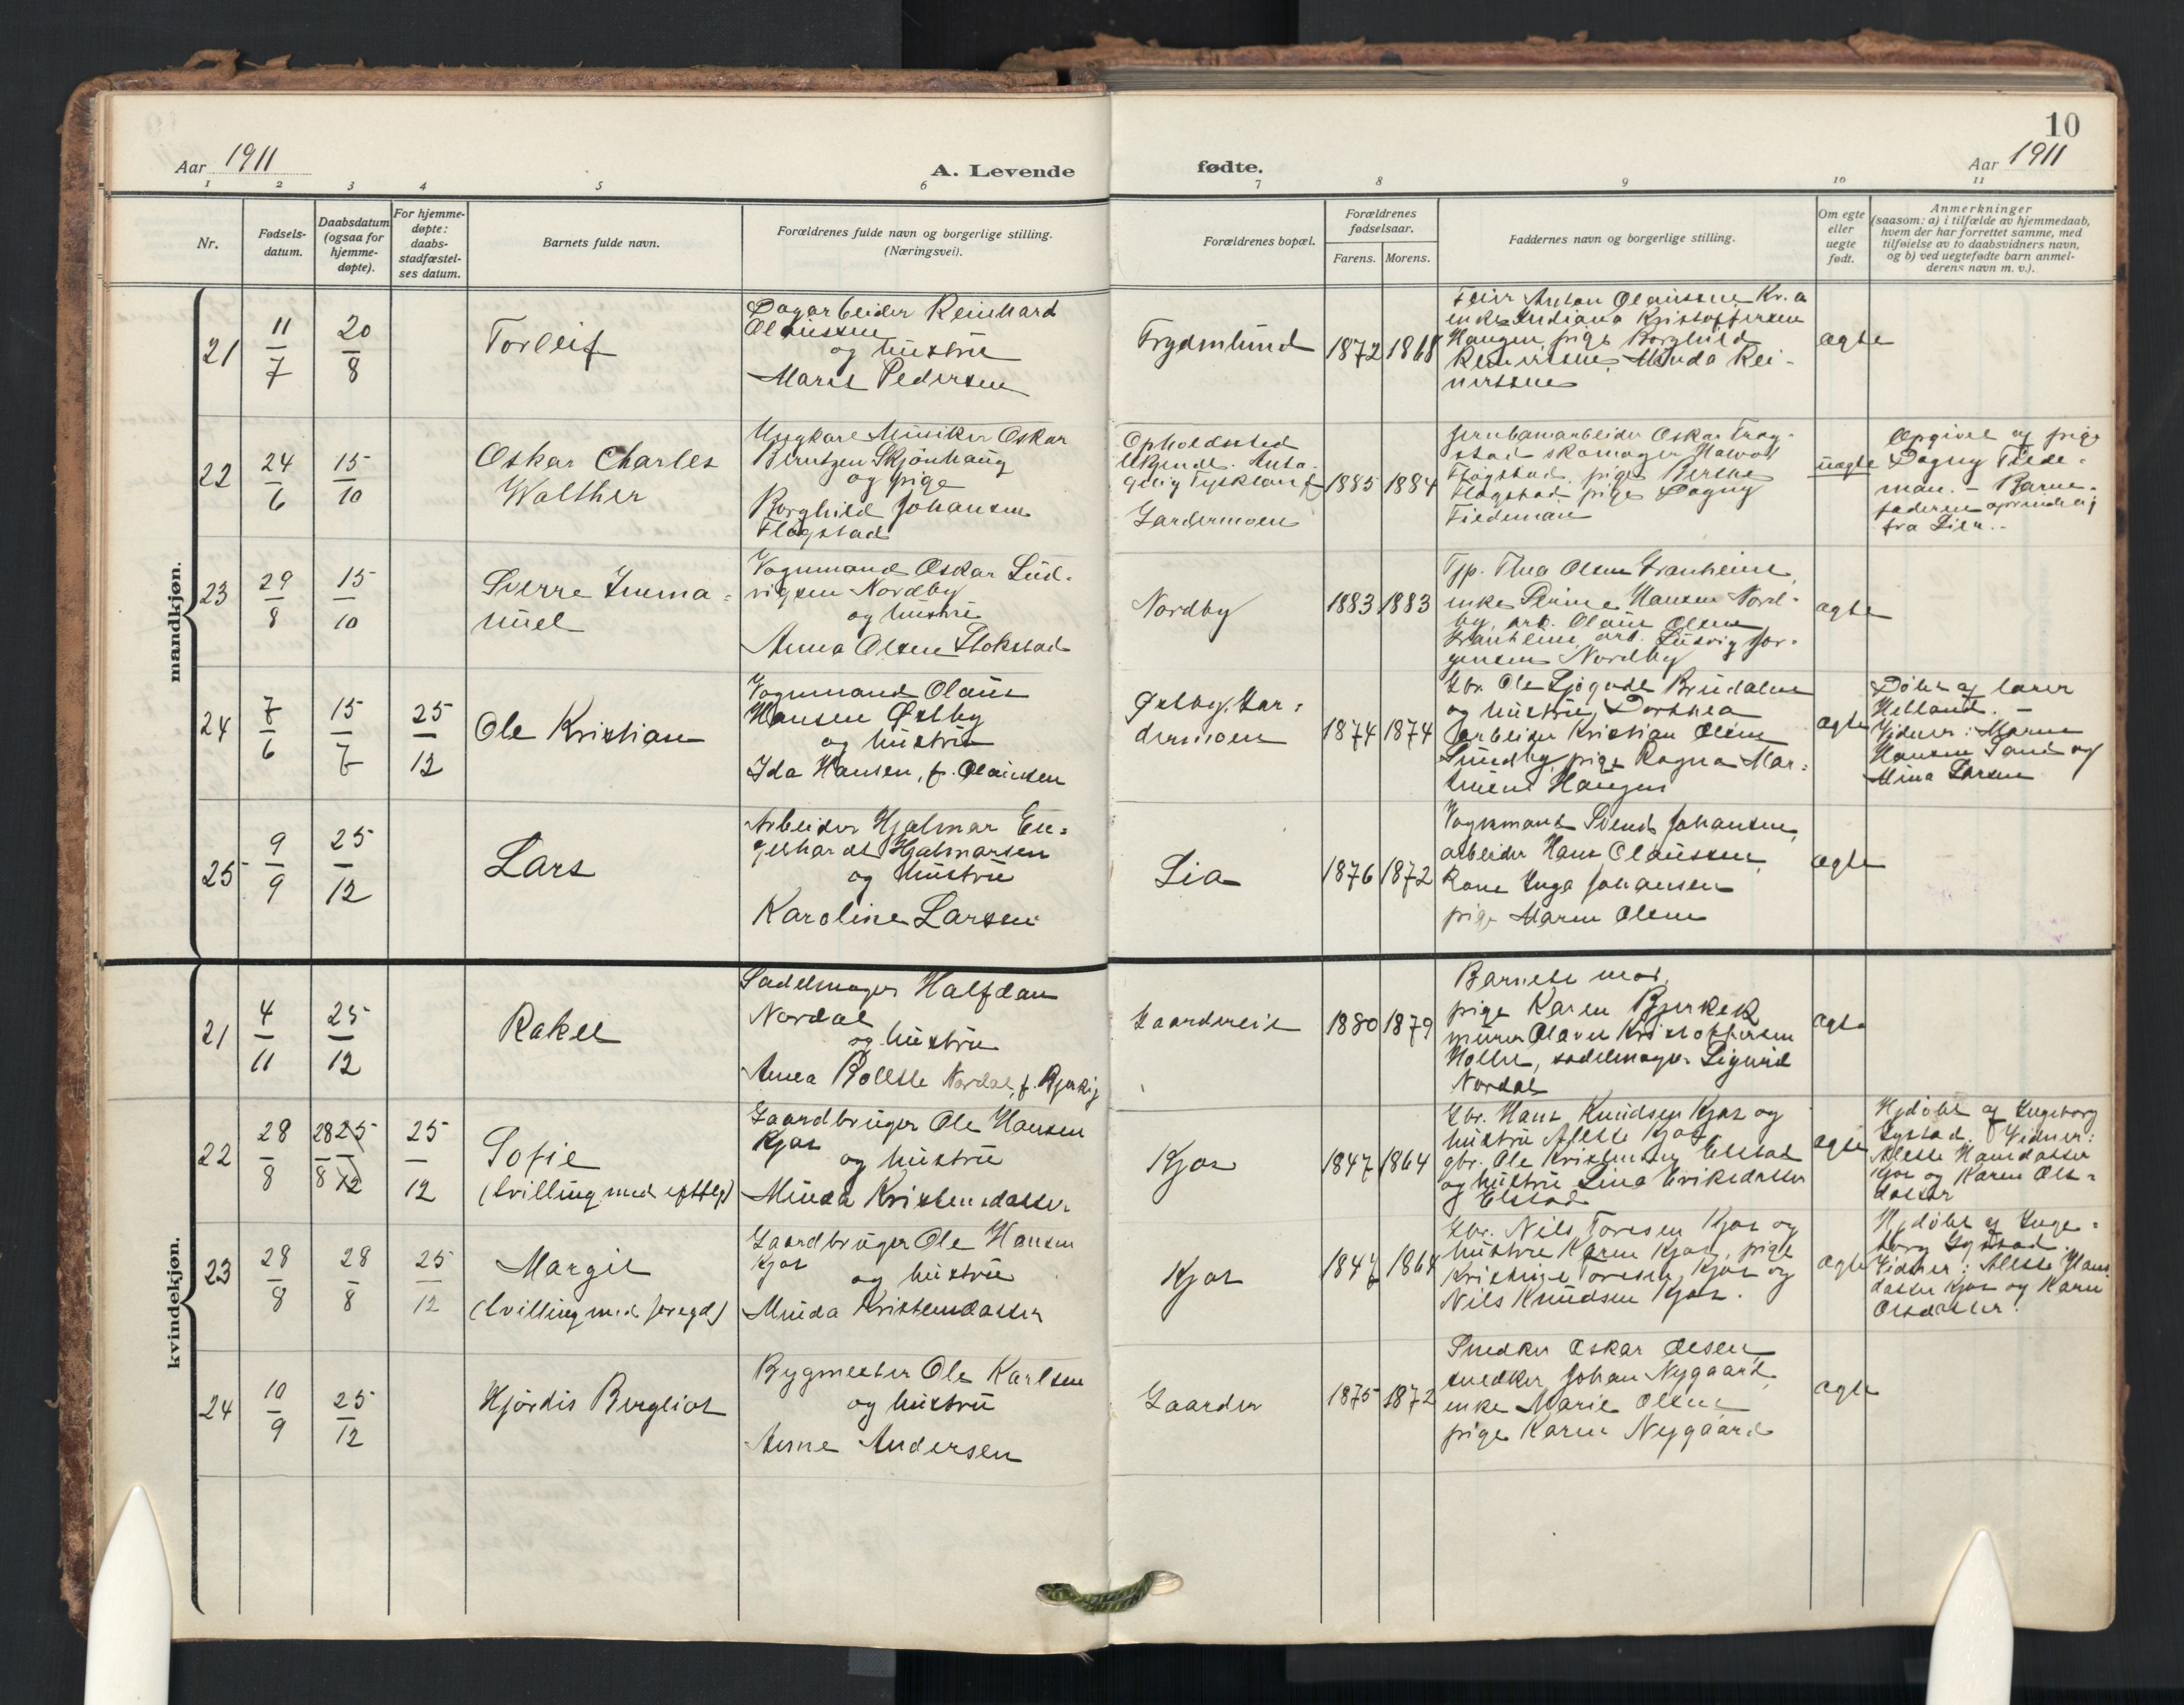 10
Aar 1911
A. Levende
fødte.
Aar 1911
1 2 3 4 5 6 7 8 9 10 11
Nr.
Fødsels-
datum.
Daabsdatum
(ogsaa for
hjemme-
døpte).
For hjemme-
døpte:
daabs-
stadfæstel-
ses datum.
Barnets fulde navn.
Forældrenes fulde navn og borgerlige stilling.
(Næringsvei).
Forældrenes bopæl.
Forældrenes
fødselsaar.
Farens. Morens.
Faddernes navn og borgerlige stilling.
Om egte
eller
uegte
født.
Anmerkninger
(saasom: a) i tilfælde av hjemmedaab,
hvem der har forrettet samme, med
tilføielse av to daabsvidners navn,
og b) ved uegtefødte barn anmel-
derens navn m. v.).
mandkjøn.
21
11/7
20/8
Torleif
Dagarbeider Reinhard
Olaussen
og hustru
Marie Pedersen
Frydenlund
1872 1868
Anton Olaussen Kr.a
enke Indiana Kristoffersen
Haugen, pige Borghild
Reinertsen, Minda Rei-
nertsen
ægte
22
24/6
15/10
Oskar Charles
Walther
Ungkarl Musiker Oskar
Berntzen Skjønhaug
og pige
Borghild Johansen
Flogstad
Opholdssted
ukjendt. Anta-
gelig Tyskland
Gardermoen
1885 1884
Jernbanearbeider Oskar Trøg-
stad skomager Halvor
Flogstad, pige Berthe
Flogstad pige Dagny
Tiedeman
uægte
Opgivet af pige
Dagny Tiede-
man. - Barne-
faderen oprindelig
fra Lier.
23
29/8
15/10
Sverre Imma-
nuel
Vognmand Oskar Lud-
vigsen Nordby
og hustru
Anna Olsen Stokstad
Nordby
1883 1883
Tjp. Thea Olsen Granheim,
enke Hansen Nord-
by, arb. Olaus Olsen
Granheim, arb. Ludvig Jør-
gensen Nordby
ægte
24
7/6
15/7
25/12
Ole Kristian
Vognmand Olaus
Hansen Østby
og hustru
Ida Hansen, f. Olaussen
Østby, Gar-
dermoen
1874 1874
Gbr. Ole Brudalen
og hustru Dorthea
arbeider Kristian Olsen
Sundby, pige Ragna Mar-
Haugen
ægte
Døbt af lærer
Helland. -
Vidner: Maren
Hansen Sand og
Mina Larsen
25
9/9
25/12
Lars
Arbeider Hjalmar En-
gelhardt Hjalmarsen
og hustru
Karoline Larsen
Lia
1876 1872
Vognmand Svend Johansen,
arbeider Hans Olaussen,
Kone Inga Johansen
pige Maren Olsen
ægte
kvindekjøn.
21
4/11
25/12
Rakel
Sadelmager Halfdan
Nordal
og hustru
Anna Bolette Nordal, f.
Gaardereie
1880 1879
Barnets mor,
pige Karen
murer Olaves Kristoffersen
Holter, sadelmager Sigurd
Nordal
ægte
22
28/8
28/8 25/12
25/12
Sofie
(tvilling med eftflg)
Gaardbruger Ole Hansen
Kjos
og hustru
Minda Kristensdatter
Kjos
1847 1864
Gbr. Hans Knudsen Kjos og
hustru Alette Kjos,
gbr. Ole Kristensen Elstad
og hustru Lina Eriksdatter
Elstad
ægte
Hjdøbt af Ingeborg
Lystad. Vidner:
Alette Hansdatter
Kjos og Karen Ols-
datter
23
28/8
28/8
25/12
Margit
(tvilling med foregd)
Gaardbruger Ole Hansen
Kjos
og hustru
Minda Kristensdatter
Kjos
1847 1864
Gbr. Nils Toresen Kjos og
hustru Karen Kjos, pige
Kristine Toresen Kjos og
Nils Knudsen Kjos.
ægte
Hjdøbt af Inge-
borg Lystad
Vidner: Alette Hans
datter Kjos og Karen
Olsdatter.
24
10/9
25/12
Hjørdis Bergliot
Bygmester Ole Karlsen
og hustru
Anne Andersen
Gaarder
1875 1872
Snedker Oskar Olsen
snedker Johan Nygaard,
enke Marie Olsen
pige Karen Nygaard
ægte